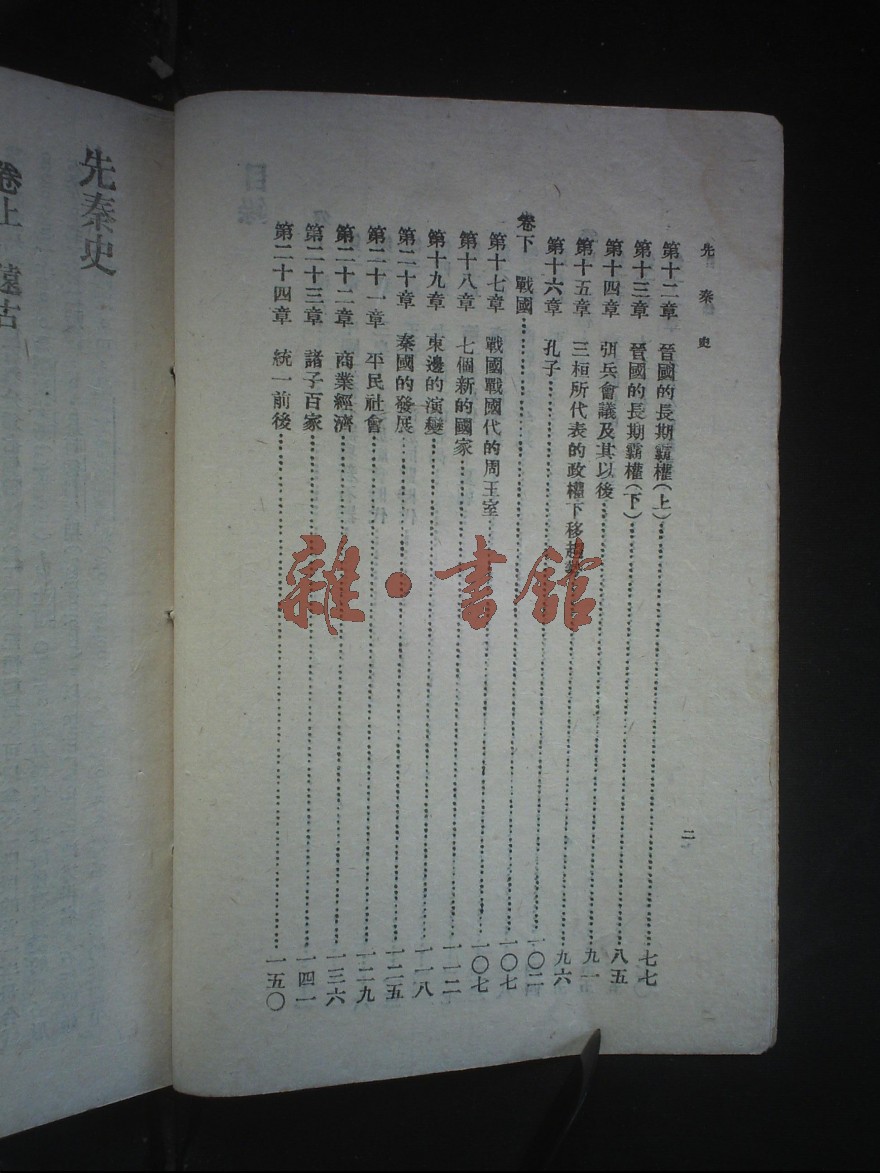 先秦史
二
第十二章 晉國的長期霸權(上)……七七
第十三章 晉國的長期霸權(下)……八五
第十四章 弭兵會議及其以後……九一
第十五章 三桓所代表的政權下移趨勢……九六
第十六章 孔子……一〇二
卷下 戰國……一〇七
第十七章 戰國戰國代的周王室……一〇七
第十八章 七個新的國家……一一二
第十九章 東邊的演變……一一八
第二十章 秦國的發展……一二五
第二十一章 平民社會……一二九
第二十二章 商業經濟……一三六
第二十三章 諸子百家……一四一
第二十四章 統一前後……一五〇
先秦史
卷上 遠古
雜·書館